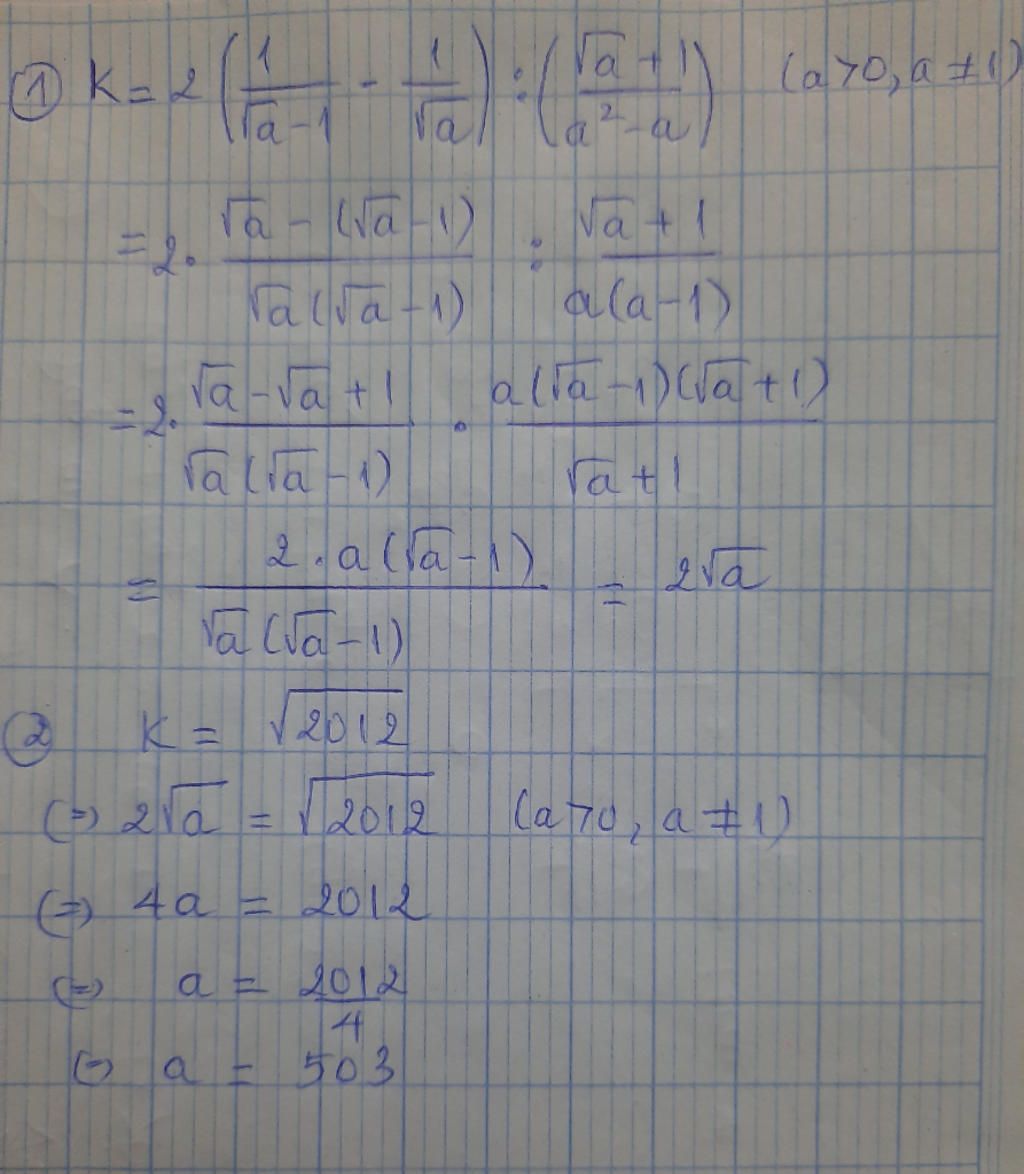 ① K = 2 (1/(√a - 1) - 1/√a) : ((√a + 1)/(a² - a)) (a > 0, a ≠ 1)
= 2. (√a - (√a - 1))/(√a(√a - 1)) : (√a + 1)/(a(a - 1))
= 2. (√a - √a + 1)/(√a(√a - 1)) . (a(√a - 1)(√a + 1))/(√a + 1)
= (2 . a(√a - 1))/(√a(√a - 1)) = 2√a
② K = √2012
(=) 2√a = √2012 (a > 0, a ≠ 1)
(=) 4a = 2012
(=) a = 2012/4
(=) a = 503